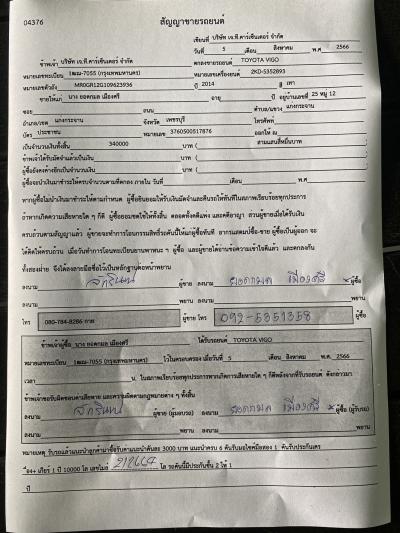 04376
สัญญาขายรถยนต์
เขียนที่ บริษัท เจ.ที.คาร์เซ็นเตอร์ จำกัด
วันที่ 5 เดือน สิงหาคม พ.ศ. 2566
ข้าพเจ้า บริษัท เจ.ที.คาร์เซ็นเตอร์ จำกัด ตกลงขายรถยนต์ TOYOTA VIGO
หมายเลขทะเบียน 1ฒฌ-7055 (กรุงเทพมหานคร) หมายเลขเครื่องยนต์ 2KD-S352893
หมายเลขตัวถัง MR0GR12G109623936 ปี 2014 สี เทา
ขายให้แก่ นาง ยอดกมล เมืองศรี อายุ ปี อยู่บ้านเลขที่ 25 หมู่ 12
ซอย ถนน ตำบล/แขวง แก่งกระจาน
อำเภอ/เขต แก่งกระจาน จังหวัด เพชรบุรี โทรศัพท์
บัตร ประชาชน หมายเลข 3760500517876 ออกให้ ณ
เป็นจำนวนเงินทั้งสิ้น 340000 บาท ( สามแสนสี่หมื่นบาท
ข้าพเจ้าได้รับมัดจำแล้วเป็นเงิน บาท (
ผู้ซื้อยังคงค้างอีกเป็นจำนวนเงิน บาท (
ผู้ซื้อจะนำเงินมาชำระให้ครบจำนวนตามที่ตกลง ภายใน วันที่ เดือน พ.ศ.
หากผู้ซื้อไม่นำเงินมาชำระให้ตามกำหนด ผู้ซื้อยินยอมให้ริบเงินมัดจำและคืนรถให้ทันทีในสภาพเรียบร้อยทุกประการ
ถ้าหากเกิดความเสียหายใด ๆ ก็ดี ผู้ซื้อยอมชดใช้ให้ทั้งสิ้น ตลอดทั้งคดีแพ่ง และคดีอาญา ส่วนผู้ขายเมื่อได้รับเงิน
ครบถ้วนตามสัญญาแล้ว ผู้ขายจะทำการโอนกรรมสิทธิ์รถคันนี้ให้แก่ผู้ซื้อทันที อากรแสตมป์ซื้อ-ขาย ผู้ซื้อเป็นผู้ออก จะ
ได้คิดให้ครบถ้วน เมื่อวันทำการโอนทะเบียนยานพาหนะ ฯ ผู้ซื้อ และผู้ขายได้อ่านข้อความเข้าใจดีแล้ว และตกลงกัน
ทั้งสองฝ่าย จึงได้ลงลายมือชื่อไว้เป็นหลักฐานต่อหน้าพยาน
ลงนาม ผู้ขาย ลงนาม ยอดกมล เมืองศรี ผู้ซื้อ
ลงนาม พยาน ลงนาม พยาน
โทร 080-784-8286 ผู้ขาย โทร 092-5351358 ผู้ซื้อ
ข้าพเจ้าผู้ซื้อ นาง ยอดกมล เมืองศรี ได้รับรถยนต์ TOYOTA VIGO
หมายเลขทะเบียน 1ฒฌ-7055 (กรุงเทพมหานคร) ไว้ในครอบครอง เมื่อวันที่ 5 เดือน สิงหาคม พ.ศ. 2566
เวลา น. ในสภาพเรียบร้อยทุกประการหากเกิดการเสียหายใด ๆ ก็ดีหลังจากที่รับรถยนต์ ดังกล่าวมา
ข้าพเจ้าขอรับผิดชอบค่าเสียหาย และความผิดตามกฎหมายต่าง ๆ ทั้งสิ้น
ลงนาม ผู้ขาย (ผู้มอบรถ) ลงนาม ยอดกมล เมืองศรี ผู้ซื้อ (ผู้รับรถ)
ลงนาม พยาน ลงนาม พยาน
หมายเหตุ รับรถแล้วแนะนำลูกค้ามาซื้อรับค่าแนะนำคันละ 3000 บาท แนะนำครบ 6 คันรับมอไซค์มือสอง 1 คันรับประกันเคร
ื่อง+ เกียร์ 1 ปี 10000 โล เลขไมล์ โล รถคันนี้มีประกันชั้น 2 ให้ 1
ปี